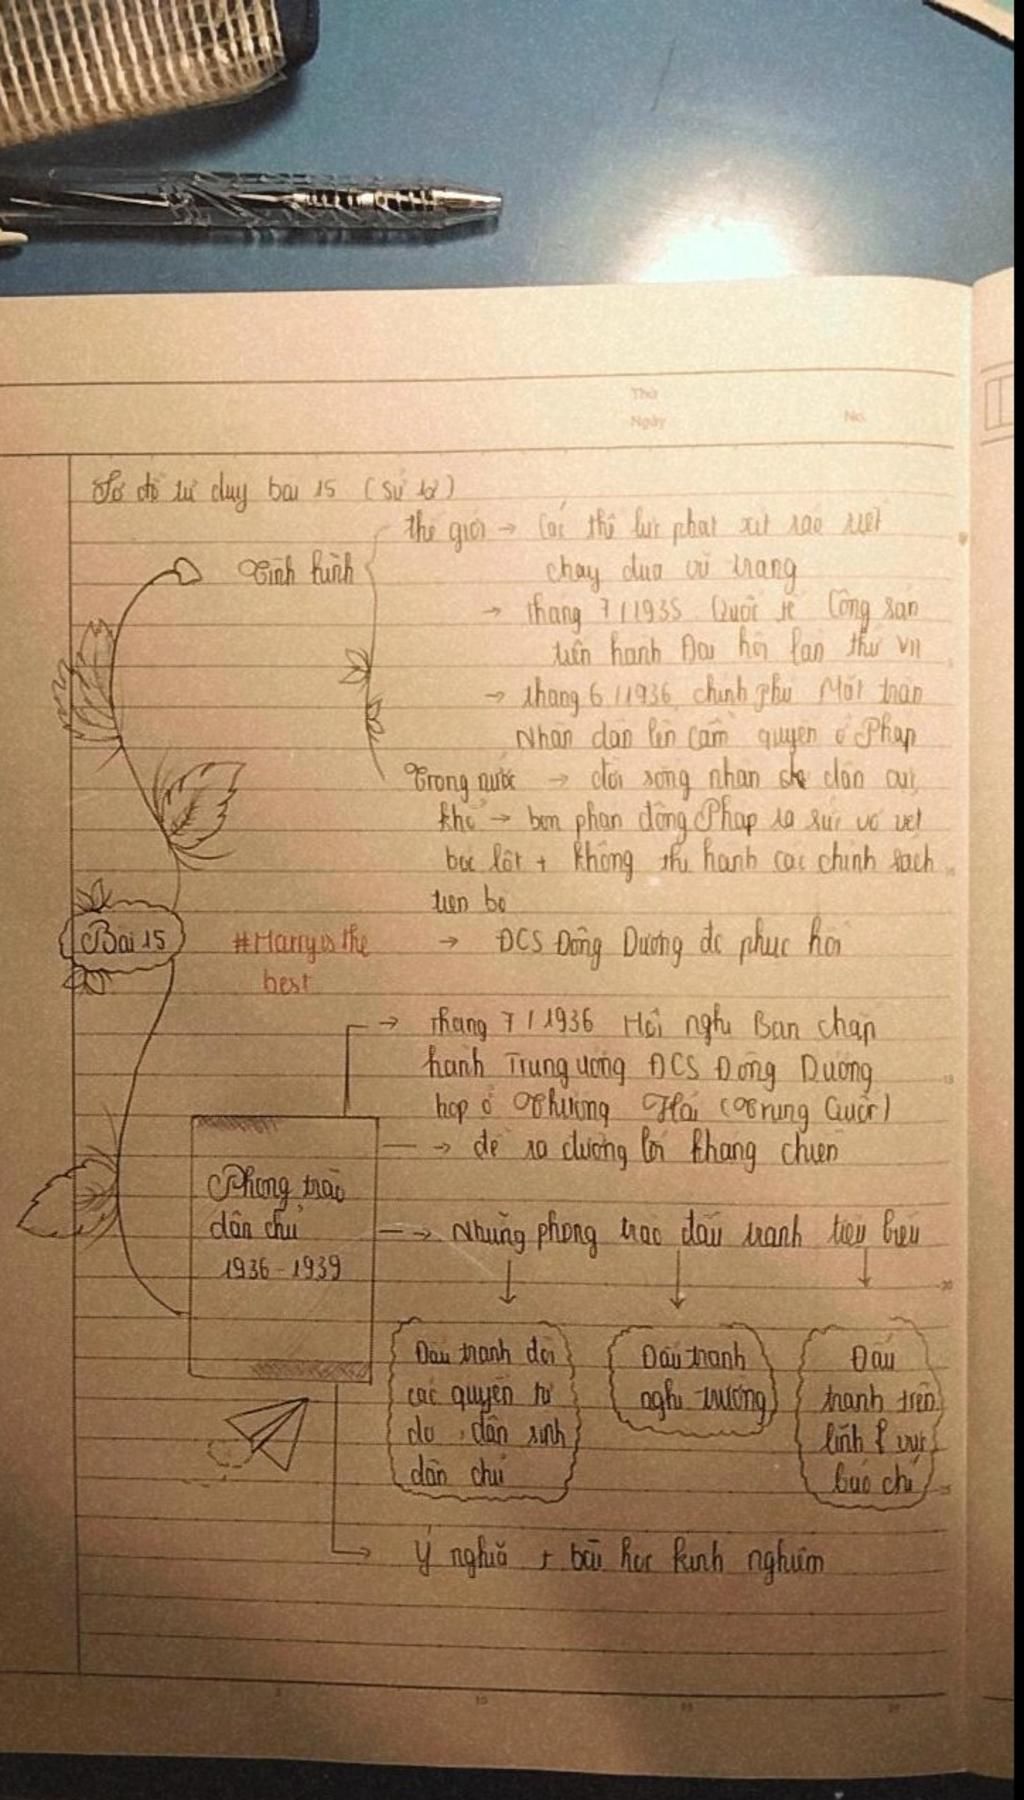 Thứ
Ngày
No.
Sơ đồ tư duy bài 15 (sử 12)
thế giới → Các thế lực phát xít ráo riết
Tình hình
chạy đua vũ trang
→ tháng 7/1935 Quốc tế Cộng sản
tiến hành Đại hội lần thứ VII
→ tháng 6/1936, chính phủ Mặt trận
Nhân dân lên cầm quyền ở Pháp
Trong nước → đời sống nhân dân cực
khổ → bọn phản động Pháp ra sức vơ vét
bóc lột + không thi hành các chính sách
tiến bộ
Bài 15
#Marryisthe
best
→ ĐCS Đông Dương đc phục hồi
→ tháng 7/1936 Hội nghị Ban chấp
hành Trung ương ĐCS Đông Dương
họp ở Thượng Hải (Trung Quốc)
→ đề ra đường lối kháng chiến
Phong trào
dân chủ
1936-1939
→ Những phong trào đấu tranh tiêu biểu
Đấu tranh đòi
các quyền tự
do, dân sinh
dân chủ
Đấu tranh
nghị trường
Đấu
tranh trên
lĩnh vực
báo chí
→ Ý nghĩa + bài học kinh nghiệm